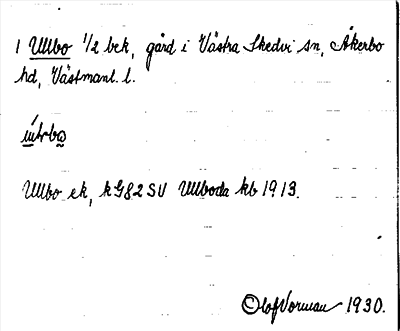 1 Ullbo 1/2 bek, gård i Västra Skedvi sn, Åkerbo
hd, Västmanl. l.
Ullbo ek, k G82 SV Ullboda kb 1913.
©Olof Vorman 1930.